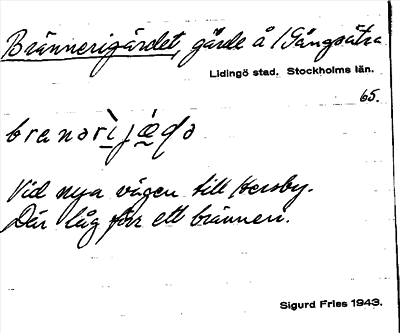 Brännerigärdet, gärde å /Gångsätra
Lidingö stad. Stockholms län.
65.
Vid nya vägen till Hersby.
Där låg förr ett bränneri.
Sigurd Fries 1943.